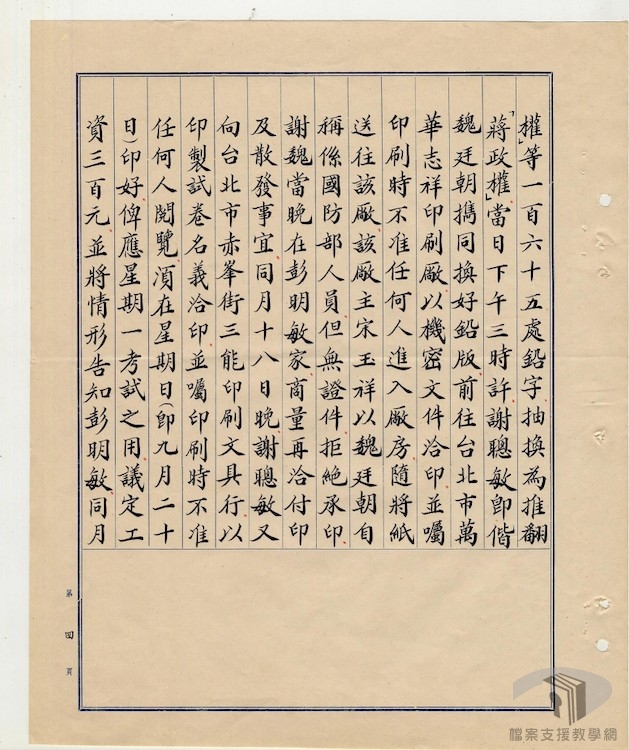 權」等一百六十五處鉛字抽換為推翻
「蔣政權」當日下午三時許謝聰敏即偕
魏廷朝攜同換好鉛版前往台北市萬
華志祥印刷廠以機密文件洽印並囑
印刷時不准任何人進入廠房隨將紙
送往該廠該廠主宋玉祥以魏廷朝自
稱係國防部人員但無證件拒絕承印
謝魏當晚在彭明敏家商量再洽付印
及散發事宜同月十八日晚謝聰敏又
向台北市赤峯街三能印刷文具行以
印製試卷名義洽印並囑印刷時不准
任何人閱覽須在星期日(即九月二十
日)印好俾應星期一考試之用議定工
資三百元並將情形告知彭明敏同月
第四頁
檔案支援教學網